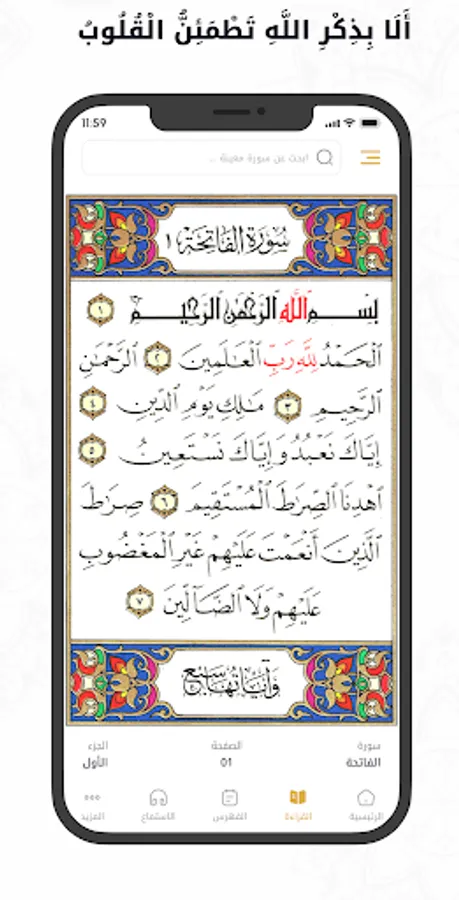 أَلَا بِذِكْرِ اللَّهِ تَطْمَئِنُّ الْقُلُوبُ
11:59
ابحث عن سورة معينة ...
سُورَةُ الفَاتِحَة ١
بِسْمِ ٱللَّهِ ٱلرَّحْمَٰنِ ٱلرَّحِيمِ ١
ٱلْحَمْدُ لِلَّهِ رَبِّ ٱلْعَٰلَمِينَ ٢ ٱلرَّحْمَٰنِ
ٱلرَّحِيمِ ٣ مَٰلِكِ يَوْمِ ٱلدِّينِ ٤
إِيَّاكَ نَعْبُدُ وَإِيَّاكَ نَسْتَعِينُ ٥
ٱهْدِنَا ٱلصِّرَٰطَ ٱلْمُسْتَقِيمَ ٦ صِرَٰطَ
ٱلَّذِينَ أَنْعَمْتَ عَلَيْهِمْ غَيْرِ ٱلْمَغْضُوبِ
عَلَيْهِمْ وَلَا ٱلضَّآلِّينَ ٧
وَآيَاتُهَا سَبْعٌ
سورة الصفحة الجزء
الفاتحة 01 الأول
الرئيسية القراءة الفهرس الاستماع المزيد